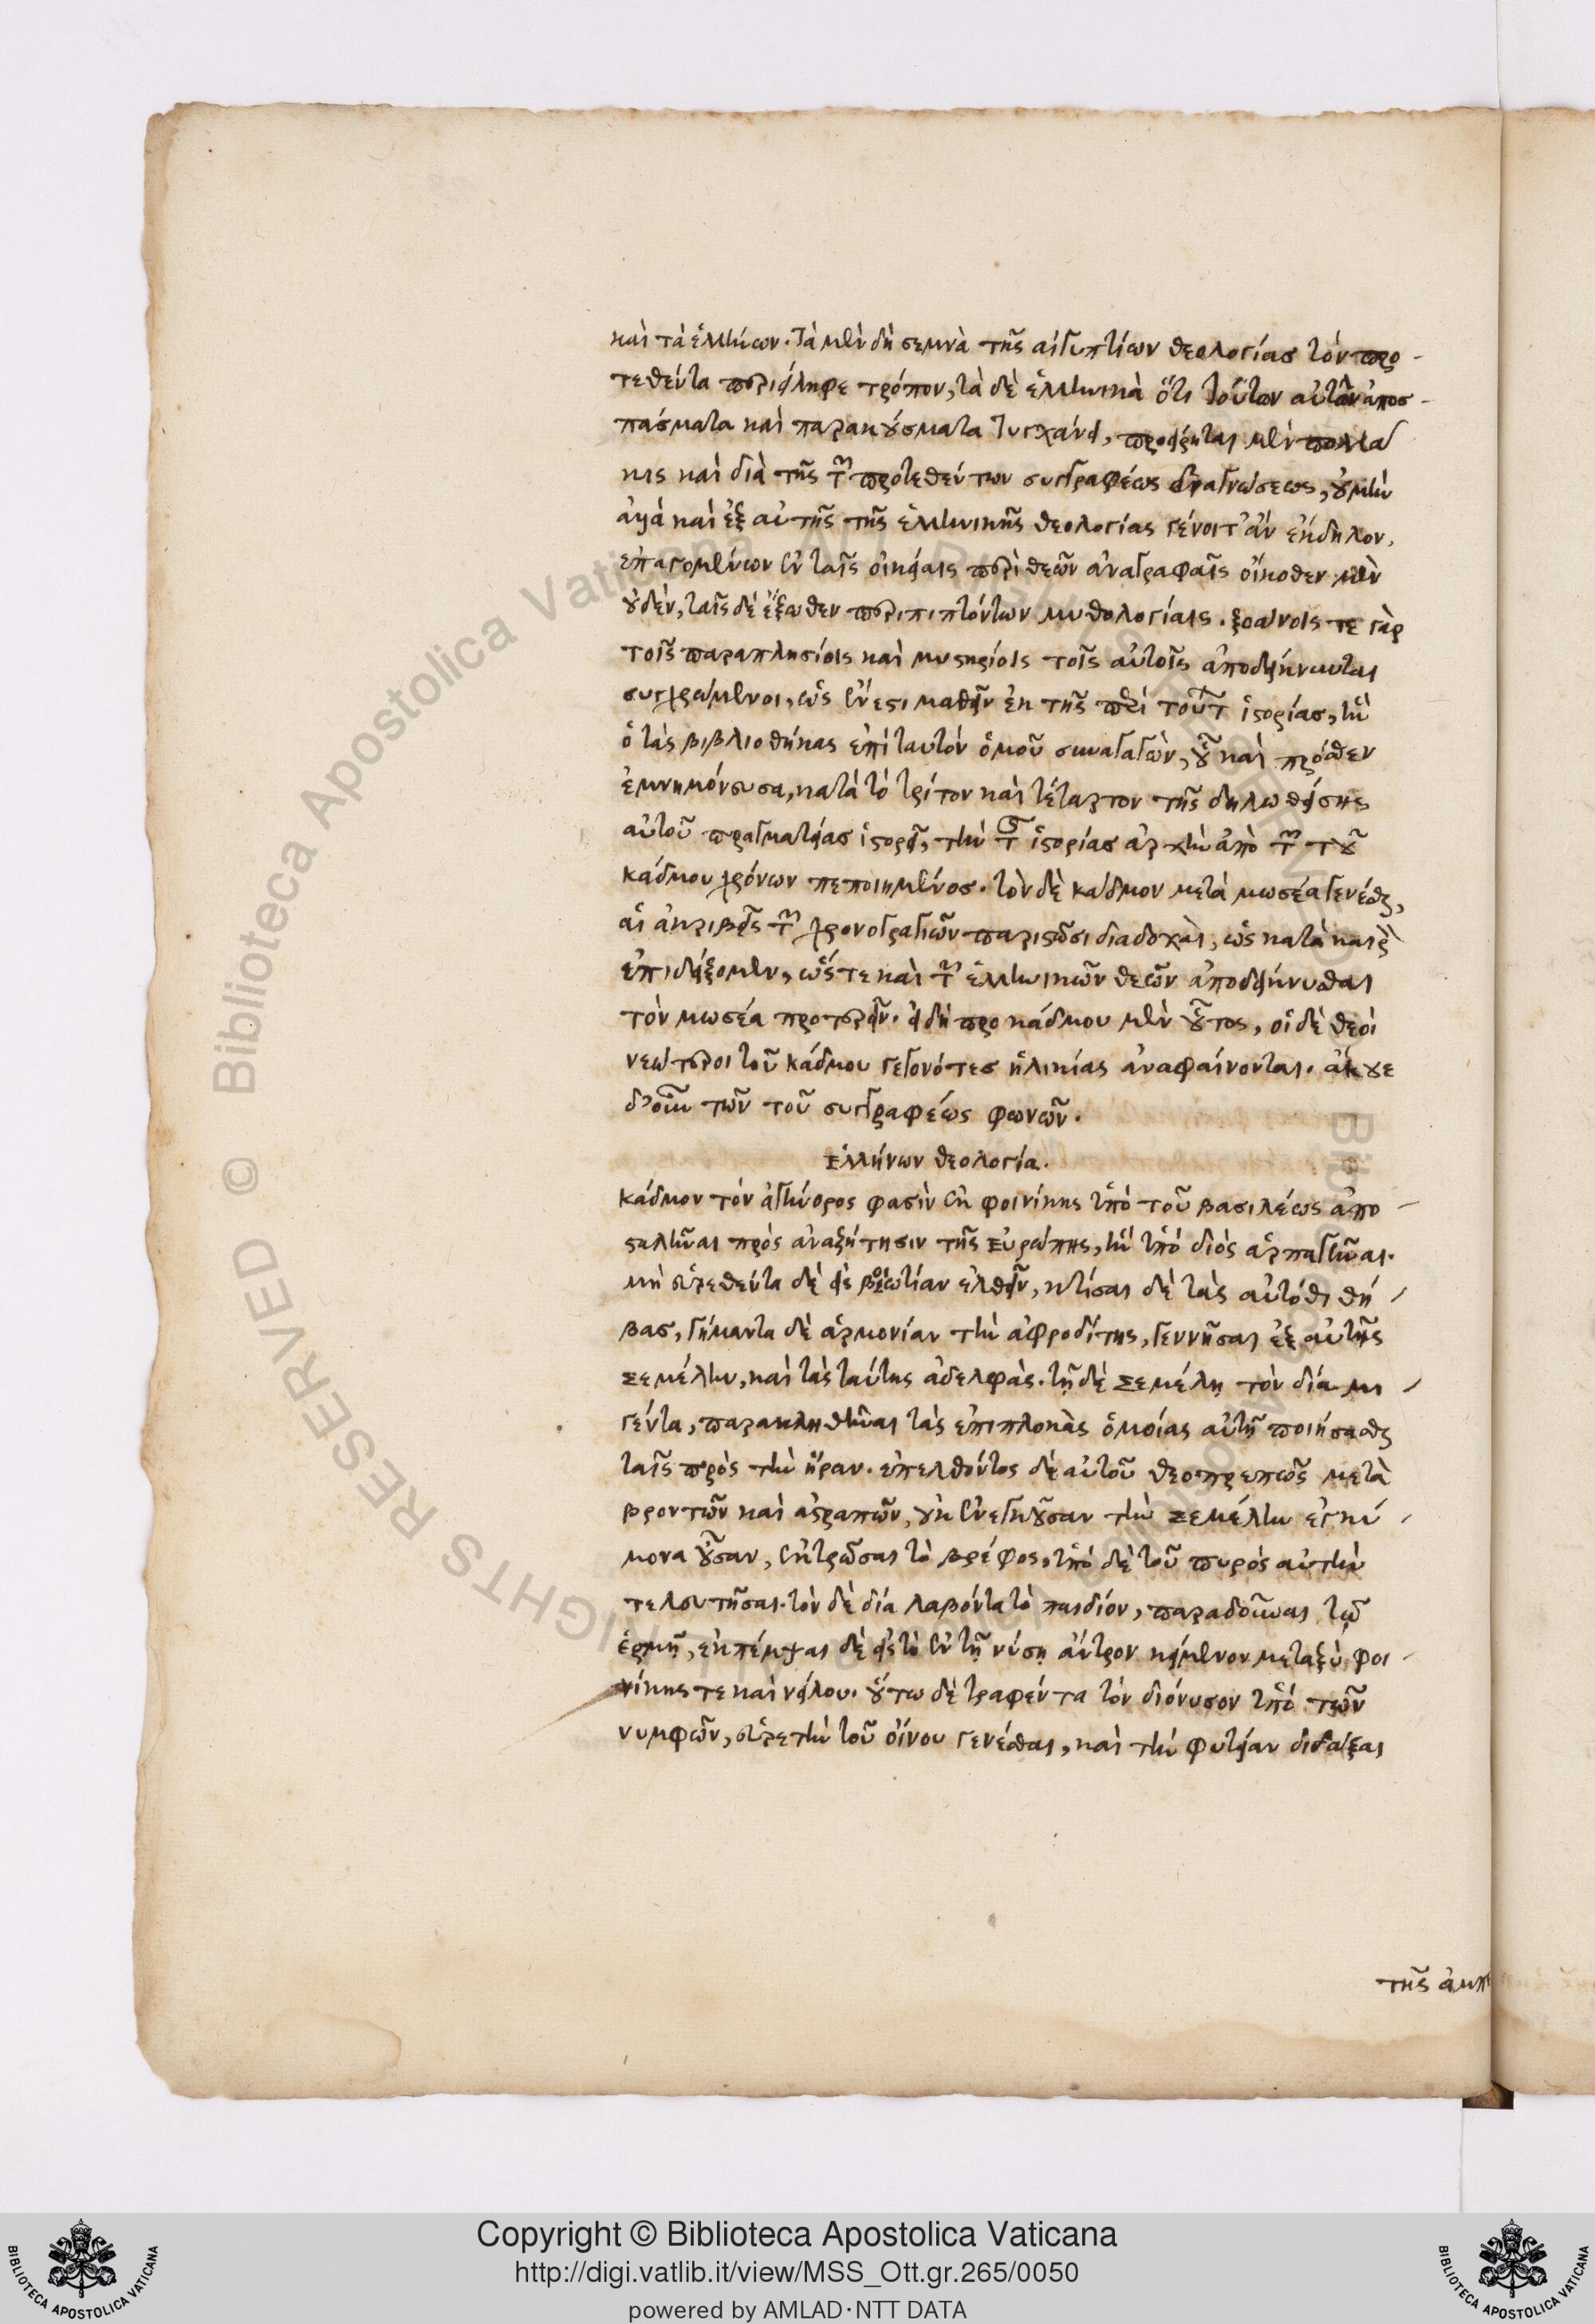 καὶ τὰ ἑλλήνων. Τὰ μὲν δὴ σεμνὰ τῆς αἰγυπτίων θεολογίας τὸν προ-
τεθέντα περιείληφε τρόπον, τὰ δὲ ἑλληνικὰ ὅτι τούτων αὐτῶν ἀποσ-
πάσματα καὶ παρακούσματα τυγχάνει, προείρηται μὲν πολλά
κις καὶ διὰ τῆς τῶν προτεθέντων συγγραφέως ἀναγνώσεως, οὐ μὴν
ἀλλὰ καὶ ἐξ αὐτῆς τῆς ἑλληνικῆς θεολογίας γένοιτ' ἂν ἔκδηλον,
ἐπαγομένων ἐν ταῖς οἰκείαις περὶ θεῶν ἀναγραφαῖς οἴκοθεν μὲν
οὐδὲν, ταῖς δὲ ἔξωθεν περιπιπτόντων μυθολογίαις. ξοάνοις τε γὰρ
τοῖς παραπλησίοις καὶ μυστηρίοις τοῖς αὐτοῖς ἀποδείκνυνται
συγχρώμενοι, ὡς ἔνεστι μαθεῖν ἐκ τῆς περὶ τούτων ἱστορίας, ἣν
ὁ τὰς βιβλιοθήκας ἐπὶ ταυτὸν ὁμοῦ συναγαγὼν, οὗ καὶ πρόσθεν
ἐμνημόνευσα, κατὰ τὸ τρίτον καὶ τέταρτον τῆς δηλωθείσης
αὐτοῦ πραγματείας ἱστορεῖ, τὴν τῆς ἱστορίας ἀρχὴν ἀπὸ τῶν τοῦ
κάδμου χρόνων πεποιημένος. τὸν δὲ κάδμον μετὰ μωσέα γενέσθαι,
αἱ ἀκριβεῖς τῶν χρονογραφιῶν παριστῶσι διαδοχαὶ, ὡς κατὰ καιρὸν
ἐπιδείξομεν, ὥστε καὶ τῶν ἑλληνικῶν θεῶν ἀποδείκνυσθαι
τὸν μωσέα προτερεῖν. εἰ δὴ προ κάδμου μὲν οὗτος, οἱ δὲ θεοὶ
νεώτεροι τοῦ κάδμου γεγονότες ἡλικίας ἀναφαίνονται. ἄκουε
δ' οὖν τῶν τοῦ συγγραφέως φωνῶν.
Ἑλλήνων θεολογία.
Κάδμον τὸν ἀγήνορος φασὶν ἐκ φοινίκης ὑπὸ τοῦ βασιλέως ἀπο-
σταλῆναι πρὸς ἀναζήτησιν τῆς Εὐρώπης, ἣν ὑπὸ διὸς ἁρπαγῆναι.
μὴ εὑρεθέντα δὲ εἰς βοιωτίαν ἐλθεῖν, κτίσαι δὲ τὰς αὐτόθι θή-
βας, γήμαντα δὲ ἁρμονίαν τὴν ἀφροδίτης, γεννῆσαι ἐξ αὐτῆς
Σεμέλην, καὶ τὰς ταύτης ἀδελφὰς. τῇ δὲ Σεμέλῃ τὸν δία μι-
γέντα, παρακληθῆναι τὰς ἐπιπλοκὰς ὁμοίας αὐτῇ ποιήσασθαι
ταῖς πρὸς τὴν ἥραν. ἐπελθόντος δὲ αὐτοῦ θεοπρεπῶς μετὰ
βροντῶν καὶ ἀστραπῶν, οὐκ ἐνεγκοῦσαν τὴν Σεμέλην ἐγκύ-
μονα οὖσαν, ἐκτρῶσαι τὸ βρέφος, ὑπὸ δὲ τοῦ πυρὸς αὐτὴν
τελευτῆσαι. τὸν δὲ δία λαβόντα τὸ παιδίον, παραδοῦναι τῷ
ἑρμῇ, ἐκπέμψαι δὲ εἰς τὸ ἐν τῇ νύσῃ ἄντρον κείμενον μεταξὺ φοι-
νίκης τε καὶ νείλου. οὕτω δὲ τραφέντα τὸν διόνυσον ὑπὸ τῶν
νυμφῶν, εὑρετὴν τοῦ οἴνου γενέσθαι, καὶ τὴν φυτείαν διδάξαι
τῆς ἀμπ
Copyright © Biblioteca Apostolica Vaticana
http://digi.vatlib.it/view/MSS_Ott.gr.265/0050
powered by AMLAD·NTT DATA
BIBLIOTECA APOSTOLICA VATICANA
BIBLIOTECA APOSTOLICA VATICANA